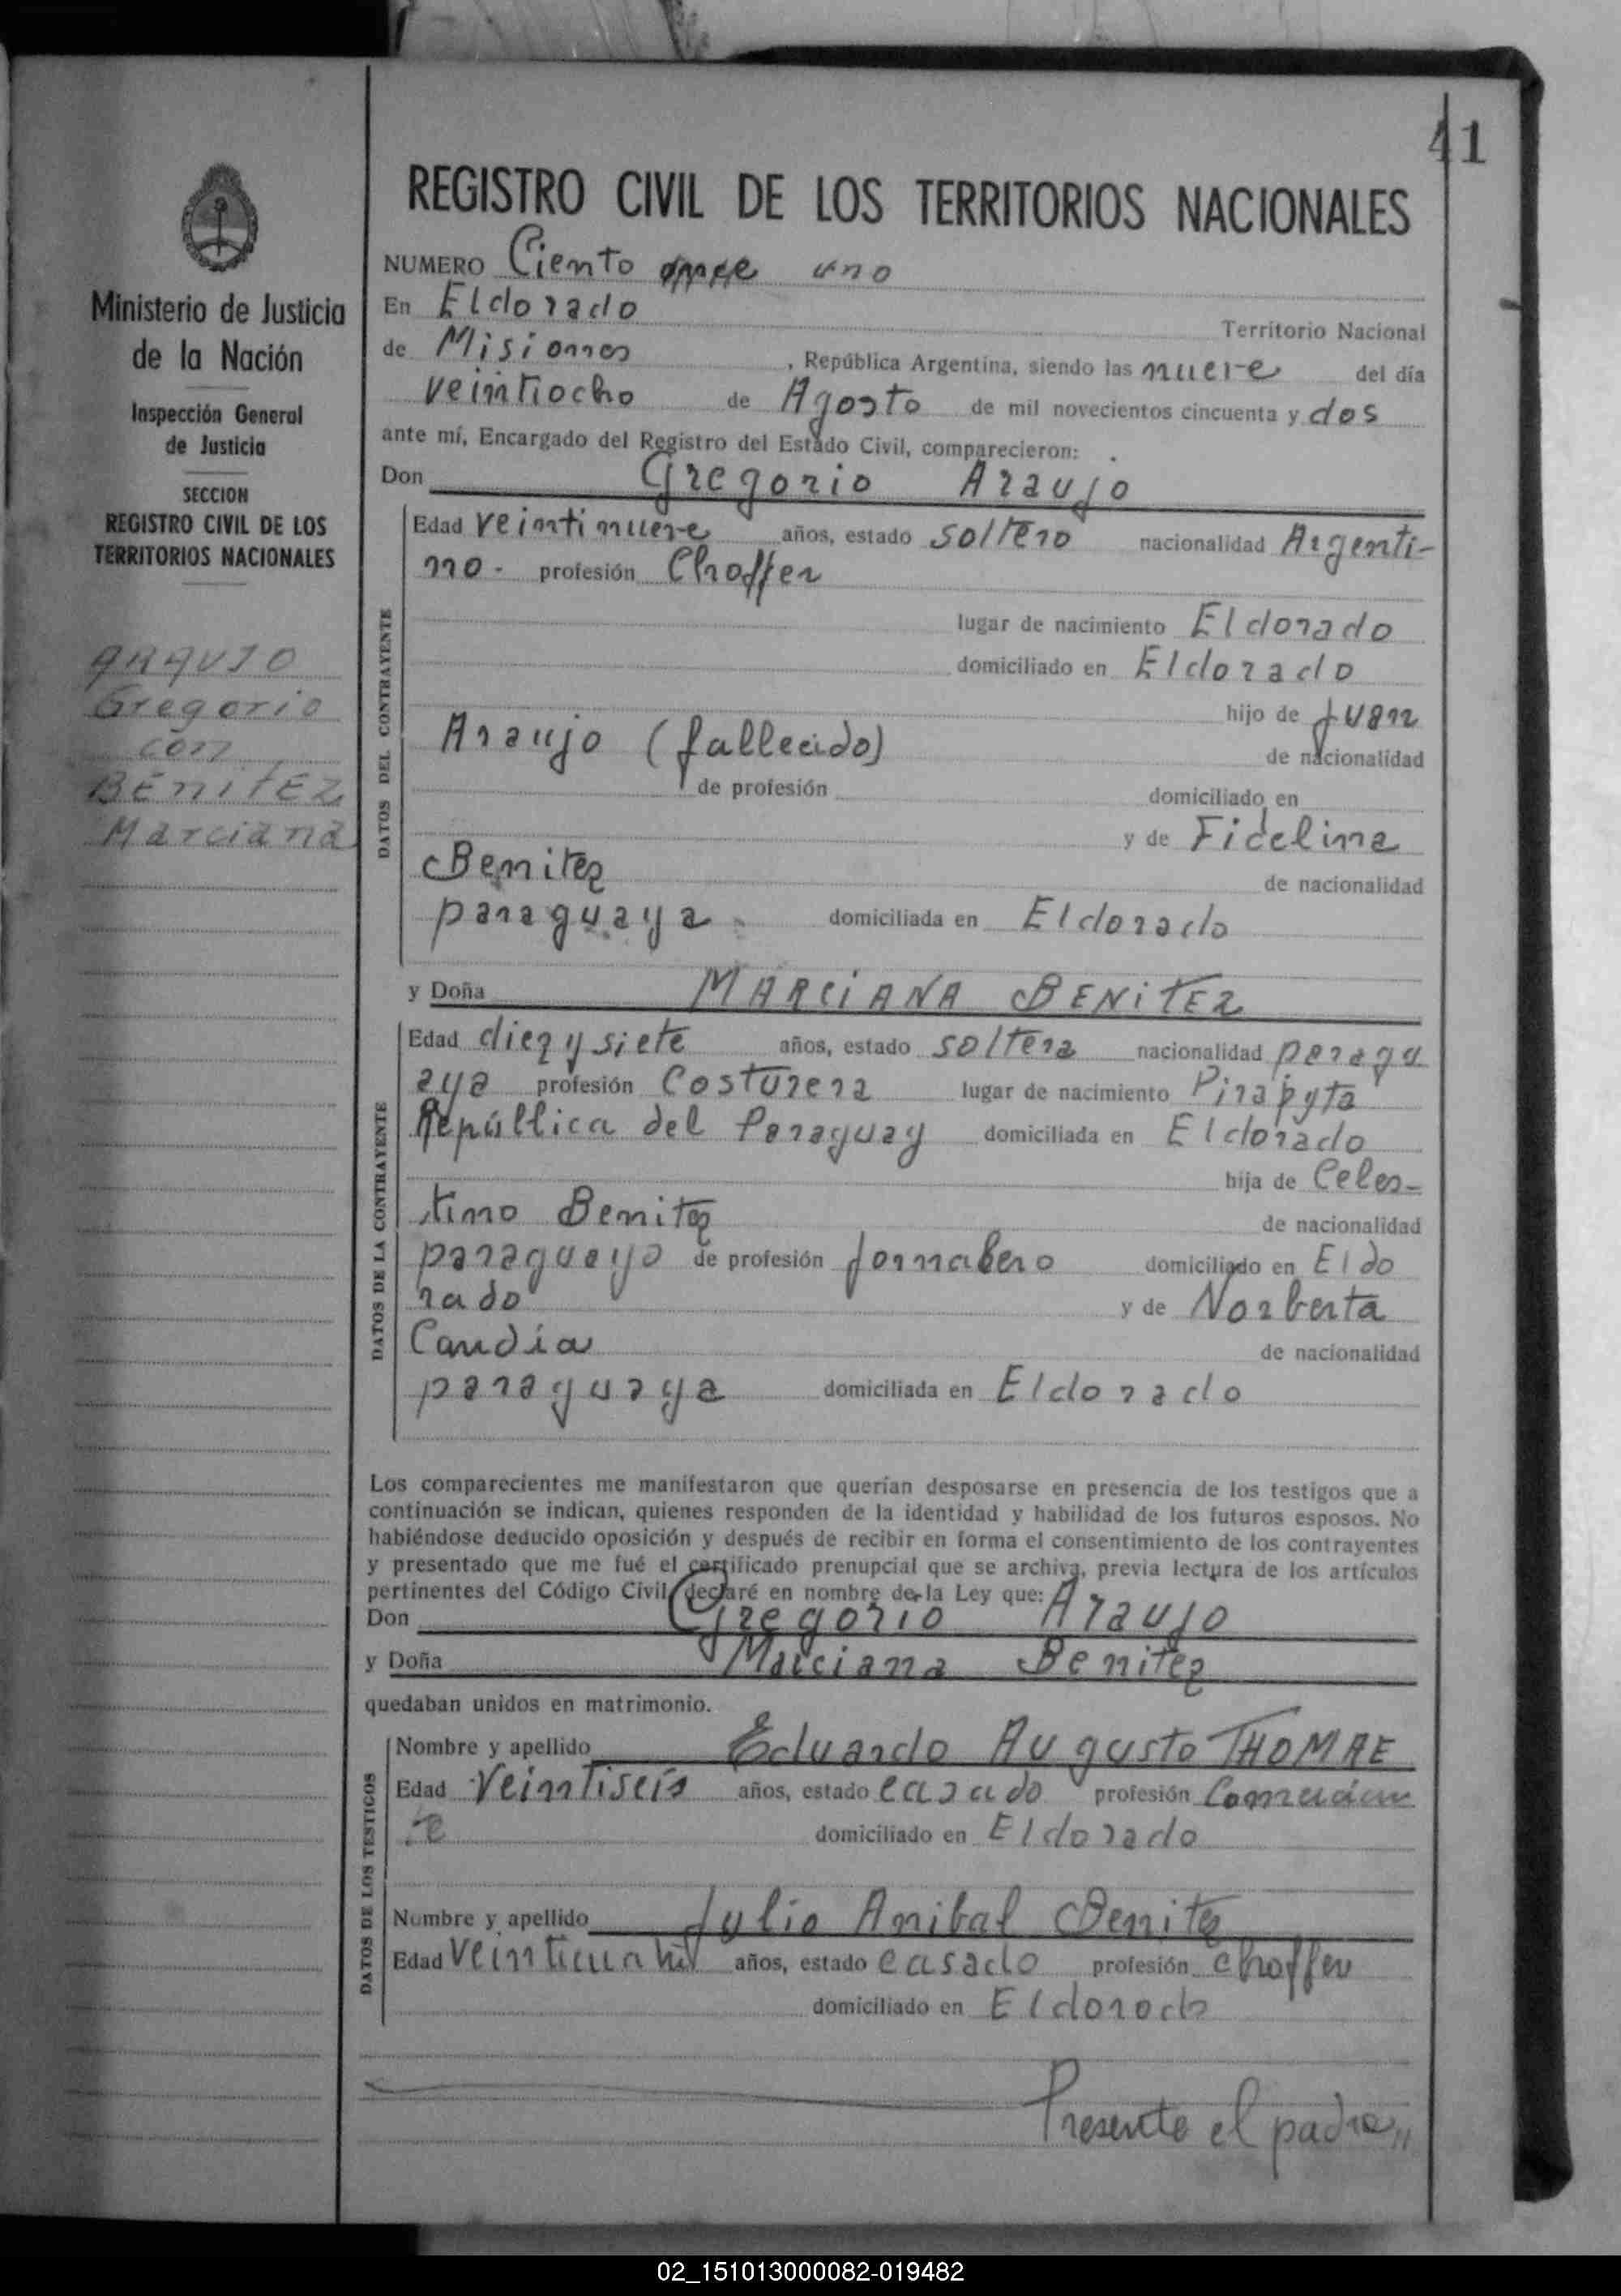 41
REGISTRO CIVIL DE LOS TERRITORIOS NACIONALES
Ministerio de Justicia
de la Nación
Inspección General
de Justicia
SECCION
REGISTRO CIVIL DE LOS
TERRITORIOS NACIONALES
ARAUJO
Gregorio
con
BENITEZ
Marciana
NUMERO Ciento uno
En Eldorado Territorio Nacional
de Misiones, República Argentina, siendo las nueve del día
veintiocho de Agosto de mil novecientos cincuenta y dos
ante mí, Encargado del Registro del Estado Civil, comparecieron:
Don Gregorio Araujo
DATOS DEL CONTRAYENTE
Edad veintinueve años, estado soltero nacionalidad Argenti-
no - profesión Choffer
lugar de nacimiento Eldorado
domiciliado en Eldorado
hijo de Juan
Araujo (fallecido) de nacionalidad
de profesión domiciliado en
y de Fidelina
Benitez de nacionalidad
paraguaya domiciliada en Eldorado
y Doña MARCIANA BENITEZ
DATOS DE LA CONTRAYENTE
Edad diez y siete años, estado soltera nacionalidad paragu
aya profesión Costurera lugar de nacimiento Pirapyta
República del Paraguay domiciliada en Eldorado
hija de Celes-
tino Benitez de nacionalidad
paraguayo de profesión jornalero domiciliado en Eldo
rado y de Norberta
Candia de nacionalidad
paraguaya domiciliada en Eldorado
Los comparecientes me manifestaron que querían desposarse en presencia de los testigos que a
continuación se indican, quienes responden de la identidad y habilidad de los futuros esposos. No
habiéndose deducido oposición y después de recibir en forma el consentimiento de los contrayentes
y presentado que me fué el certificado prenupcial que se archiva, previa lectura de los artículos
pertinentes del Código Civil, declaré en nombre de la Ley que:
Don Gregorio Araujo
y Doña Marciana Benitez
quedaban unidos en matrimonio.
DATOS DE LOS TESTIGOS
Nombre y apellido Eduardo Augusto THOMAE
Edad Veintiseis años, estado casado profesión Comercian
te domiciliado en Eldorado
Nombre y apellido Julio Anibal Benitez
Edad Veinticuatro años, estado casado profesión choffer
domiciliado en Eldorado
Presente el padre,,
02_151013000082-019482